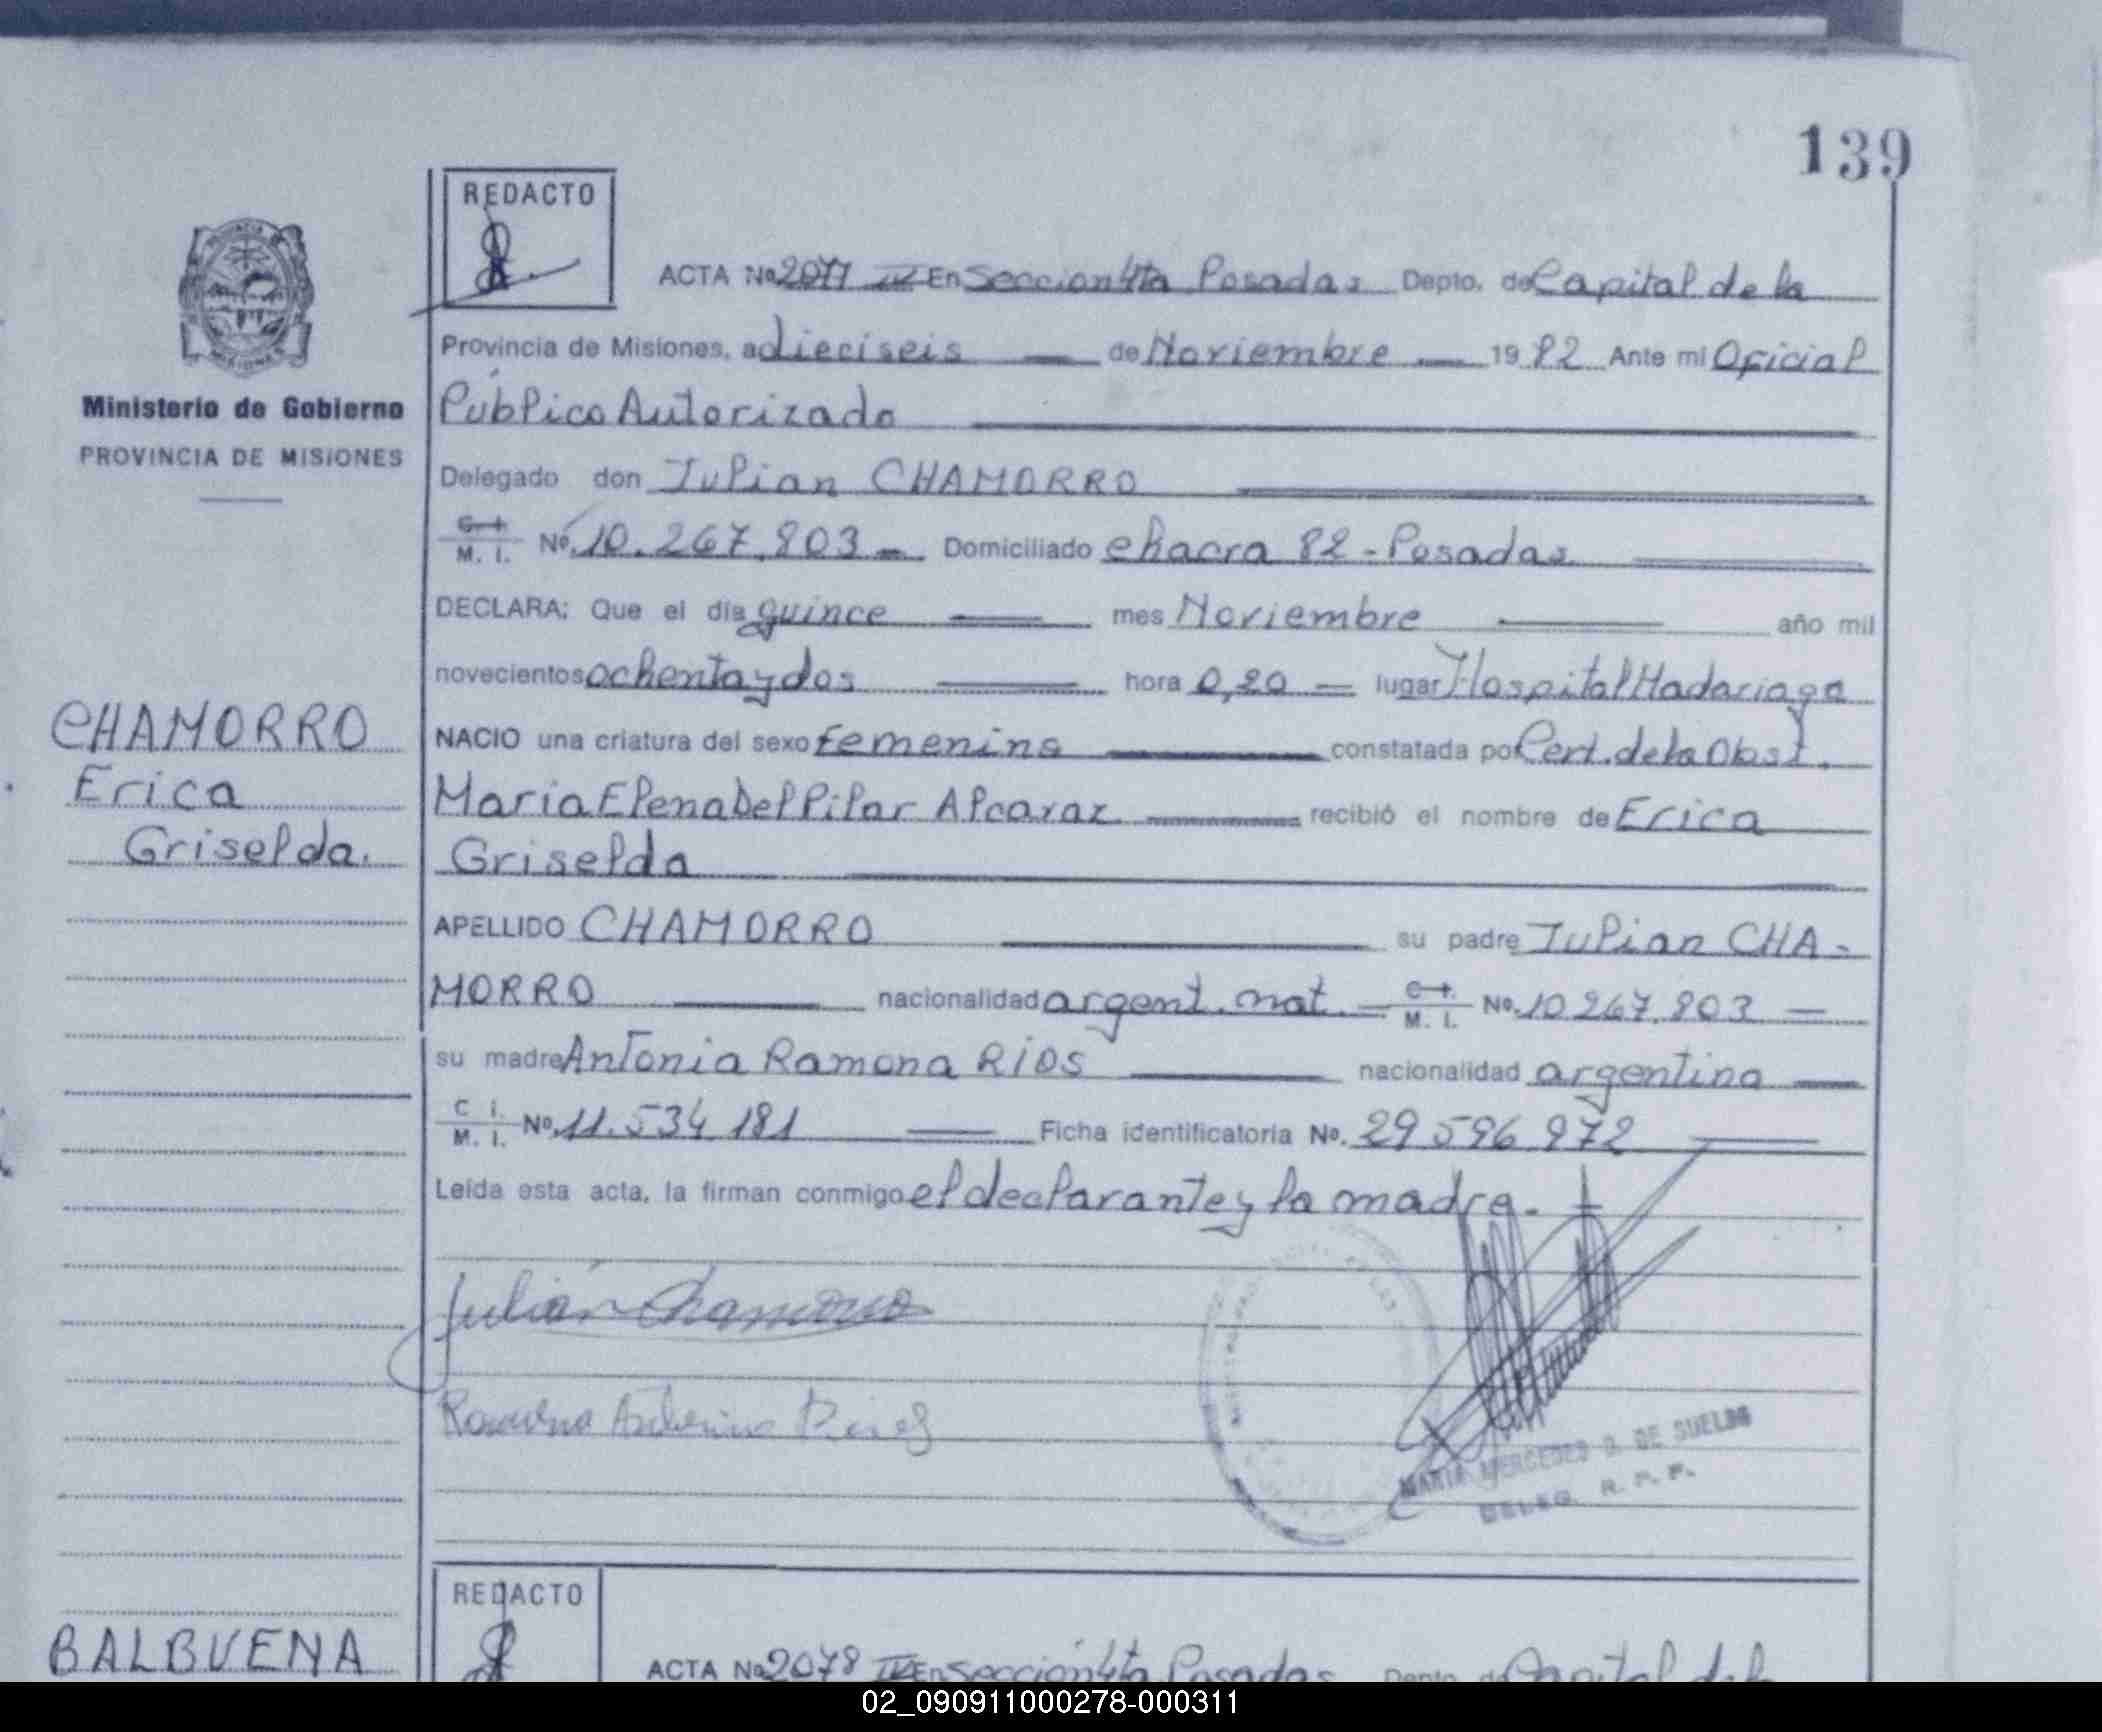 139
REDACTO
ACTA No 2077 IV En Seccion 4ta Posadas Depto. de Capital de la
Provincia de Misiones, a dieciseis de Noviembre 1982 Ante mi Oficial
Público Autorizado
Ministerio de Gobierno
PROVINCIA DE MISIONES
Delegado don Julian CHAMORRO
C. I. M. I. No. 10.267.803 Domiciliado chacra 82 - Posadas
DECLARA: Que el día quince mes Noviembre año mil
novecientos ochenta y dos hora 0,20 lugar Hospital Madariaga
NACIO una criatura del sexo femenino constatada por Cert. de la Obst.
Maria Elena Del Pilar Alcaraz recibió el nombre de Erica
Griselda
CHAMORRO
Erica
Griselda.
APELLIDO CHAMORRO su padre Julian CHA-
MORRO nacionalidad argent. nat. C. I. M. I. No. 10267.803
su madre Antonia Ramona RIOS nacionalidad argentina
C. I. M. I. No. 11.534.181 Ficha identificatoria No. 29596972
Leída esta acta, la firman conmigo el declarante y la madre.
Julián Chamorro
MARIA MERCEDES D. DE SUELDO
DELEG. R. P. P.
REDACTO
BALBUENA
ACTA No 2078 IV En Seccion 4ta Posadas Depto de Capital de la
02_090911000278-000311